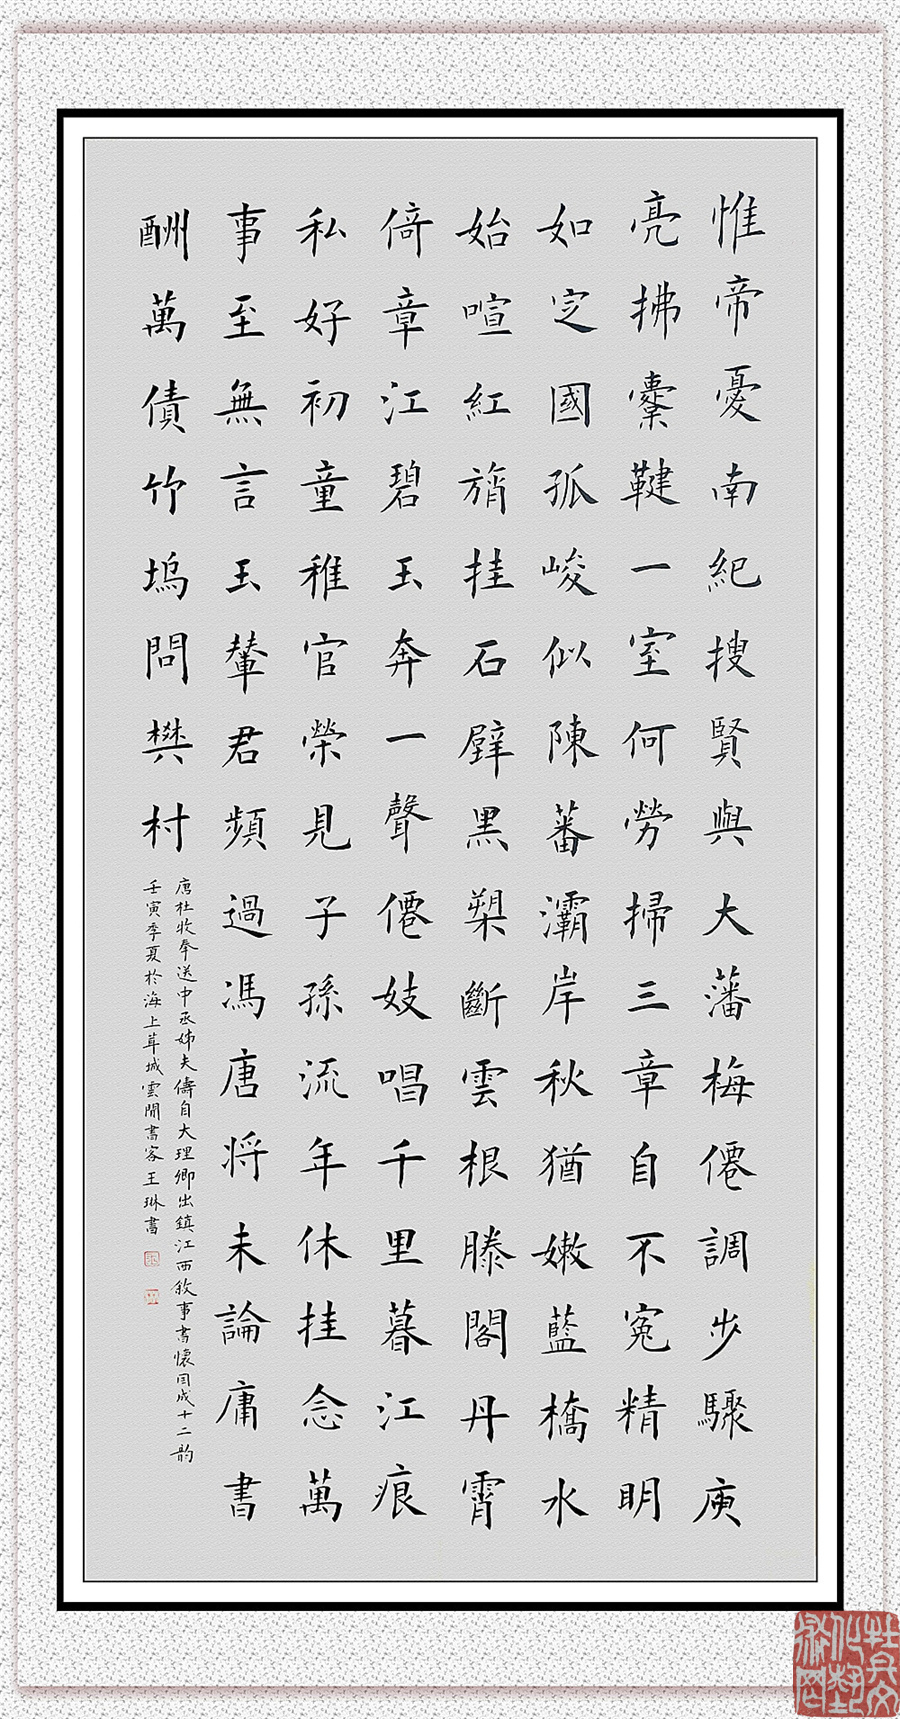 惟帝憂南紀搜賢與大藩梅僊調步驟庾
亮拂櫜鞬一室何勞掃三章自不冤精明
如定國孤峻似陳蕃灞岸秋猶嫩藍橋水
始喧紅旓挂石壁黑槊斷雲根滕閣丹霄
倚章江碧玉奔一聲僊妓唱千里暮江痕
私好初童稚官榮見子孫流年休挂念萬
事至無言玉輦君頻過馮唐将未論庸書
酬萬債竹塢問樊村
唐杜牧奉送中丞姊夫儔自大理卿出鎮江西敘事書懷因成十二韵
壬寅季夏於海上茸城雲間書客王琳書